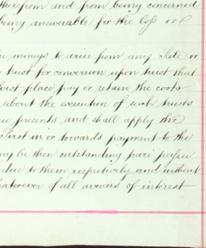 therefrom and from being concerned
being answerable for the loss
moneys to arise from any Sale or
trust for conversion upon trust that
first place pay or retain the costs
about the execution of such trusts
presents and shall apply the
first in or towards payment to the
be then outstanding pari passu
due to them respectively and without
whatsoever if all arrears of interest